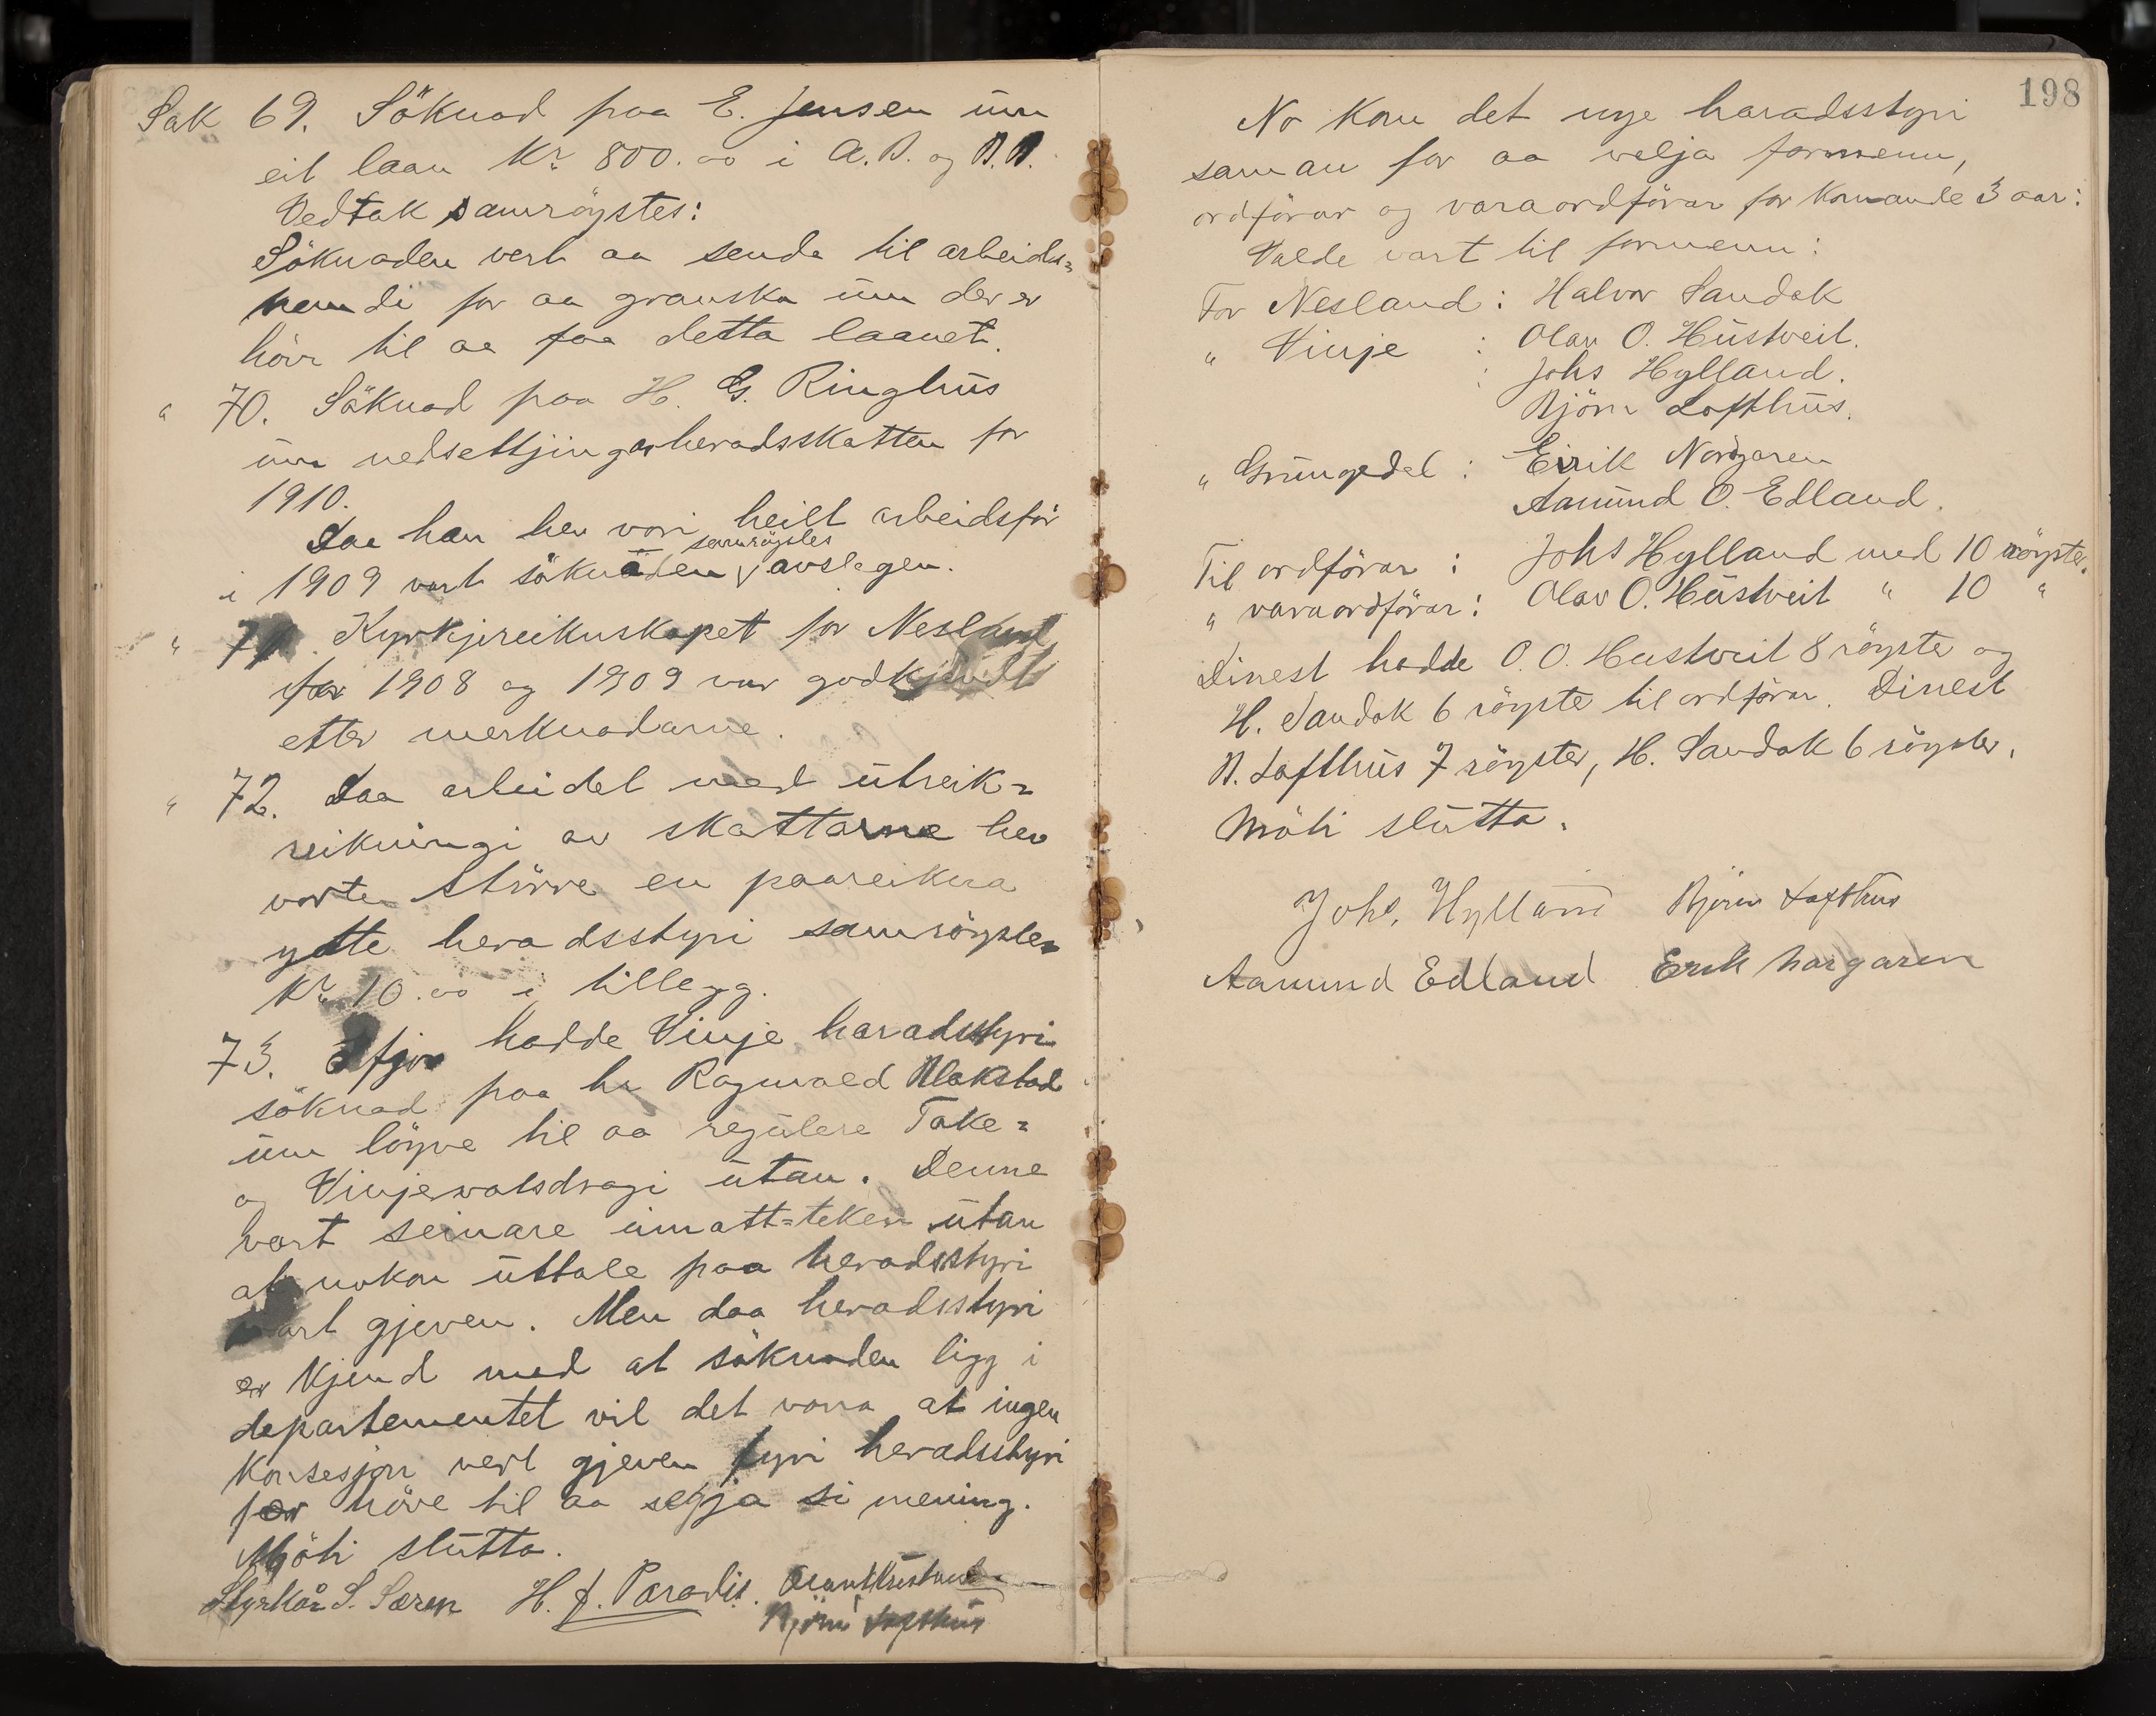 Sak 69. Söknad paa E. Jensen üm
eit laan Kr 800.00 i A.B. og B.B.
Vedtak samröystes:
Söknaden vert aa senda til arbeids=
nemdi for aa granska üm der er
hövr til aa faa detta laanet.
" 70. Söknad paa H. G. Ringhüs
üm nedsettjing av heradsskatten for
1910.
Daa han hev vori heilt arbeidsför
samröystes
i 1909 vart söknaden avslegen.
" 71. Kyrkjereikneskapet for Nesland
for 1908 og 1909 var godkjendt
etter merknadarne.
" 72. Daa arbeidet med ütreik=
reikningi av skattarne hev
vorte större en paareikna
ytte heradsstyri samröystes
Kr 10.00 i tillegg.
73. Ifjor hadde Vinje haradsstyri
söknad paa hr Ragnvald Blakstad
üm löyve til aa regülere Toke=
og Vinjevatsdragi ütan. Denne
vart seinare imatt=teken ütan
at nokon üttale paa heradsstyri
vart gjeven. Men daa heradsstyri
er kjend med at söknaden ligg i
departementet vil det vona at ingen
konsesjon vert gjeven fyri heradsstyri
fær höve til aa segja si mening.
Möti slütta.
Styrkår S. Særen H. J. Paradis.
Björn Lofthüs
198
No kom det nye haradsstyri
saman for aa velja formenn,
ordförar og varaordförar for komande 3 aar:
Valde vart til formenn:
For Nesland: Halvor Sandok
" Vinje : Olav O. Hüstveit.
: Johs Hylland.
Björn Lofthüs.
" Grüngedal : Eirik Norgaren
Aamünd O. Edland.
Til ordförar : Johs Hylland med 10 röyster.
" varaordförar: Olav O. Hüstveit " 10 "
Dinest hadde O. O. Hustveit 8 röyste og
H. Sandok 6 röyste til ordförar. Dinest
B. Lofthüs 7 röyster, H. Sandok 6 röyster.
Möti slütta.
Johs. Hylland Björn Lofthus
Aamund Edland Erik Norgaren